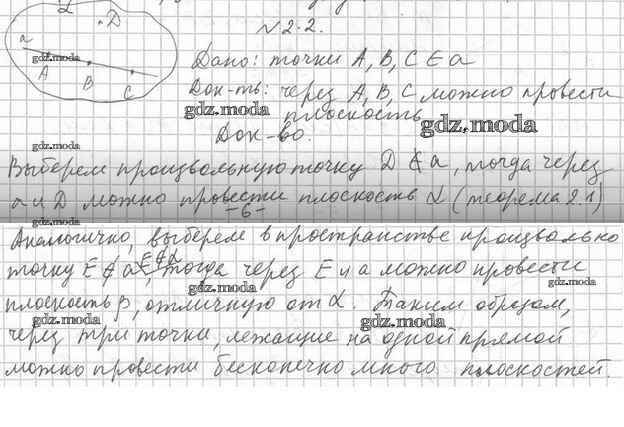 α
D
№2.2.
a
gdz.moda
Дано: точки A, B, C ∈ a
A
B
C
Док-ть: через A, B, C можно провести
gdz.moda
плоскость
gdz.moda
Док-во.
gdz.moda
Выберем произвольную точку D ∉ a, тогда через
a и D можно провести плоскость α (теорема 2.1)
- 6 -
gdz.moda
Аналогично, выберем в пространстве произвольно
точку E ∉ a, E ∉ α, тогда через E и a можно провести
gdz.moda
gdz.moda
плоскость β, отличную от α. Таким образом,
gdz.moda
gdz.moda
через три точки, лежащие на одной прямой
можно провести бесконечно много плоскостей.
gdz.moda
gdz.moda